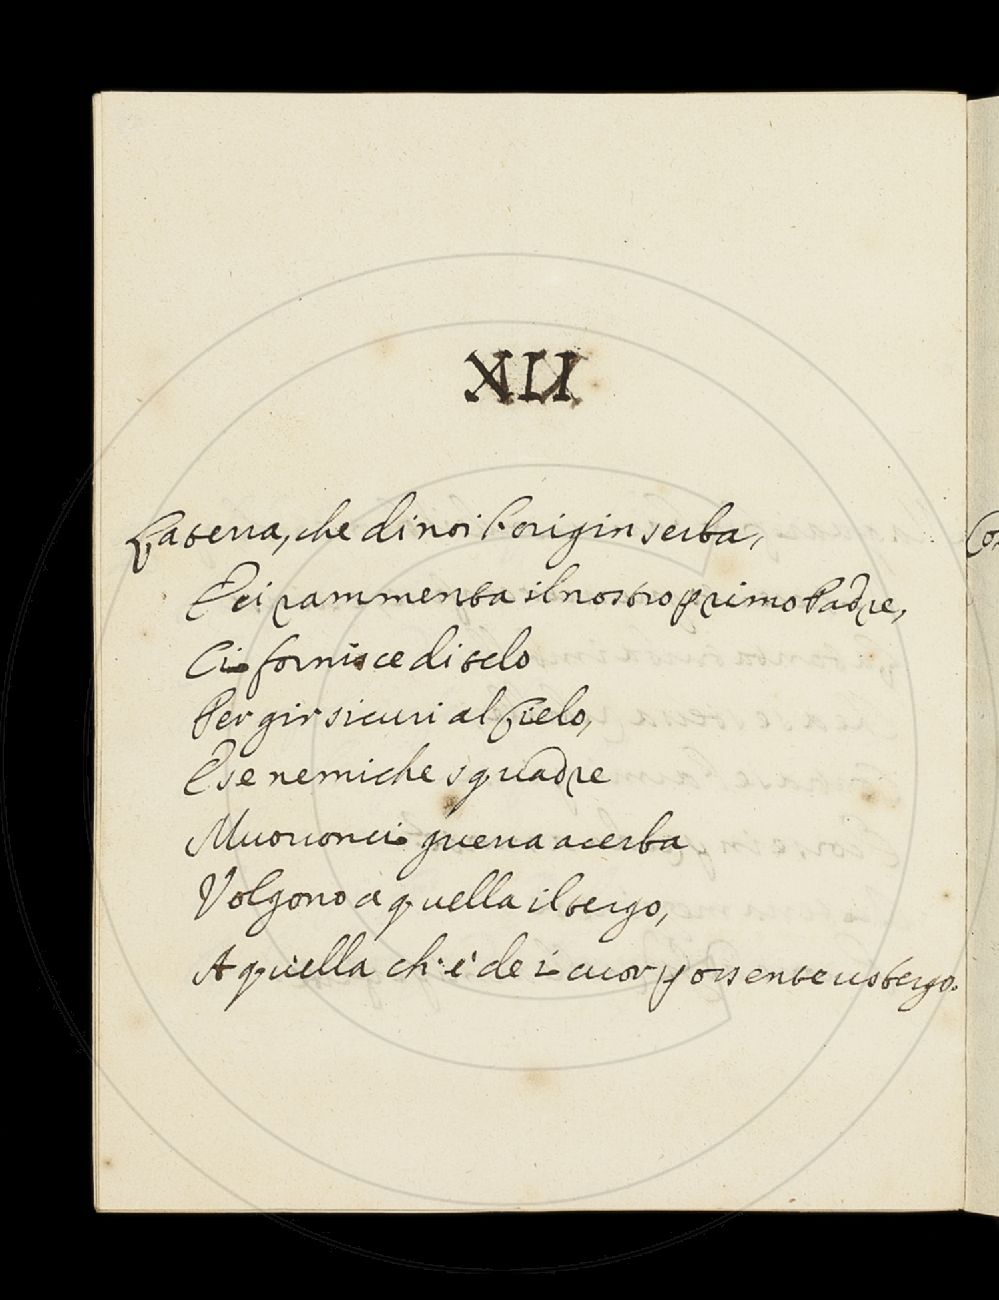 XII
La terra, che di noi l'origin serba,
E ci rammenta il nostro primo Padre,
Ci fornisce di telo
Per gir sicuri al Cielo,
E se nemiche squadre
Muovonci guerra acerba
Volgono a quella il tergo,
A quella ch'è de i cuor possente usbergo.